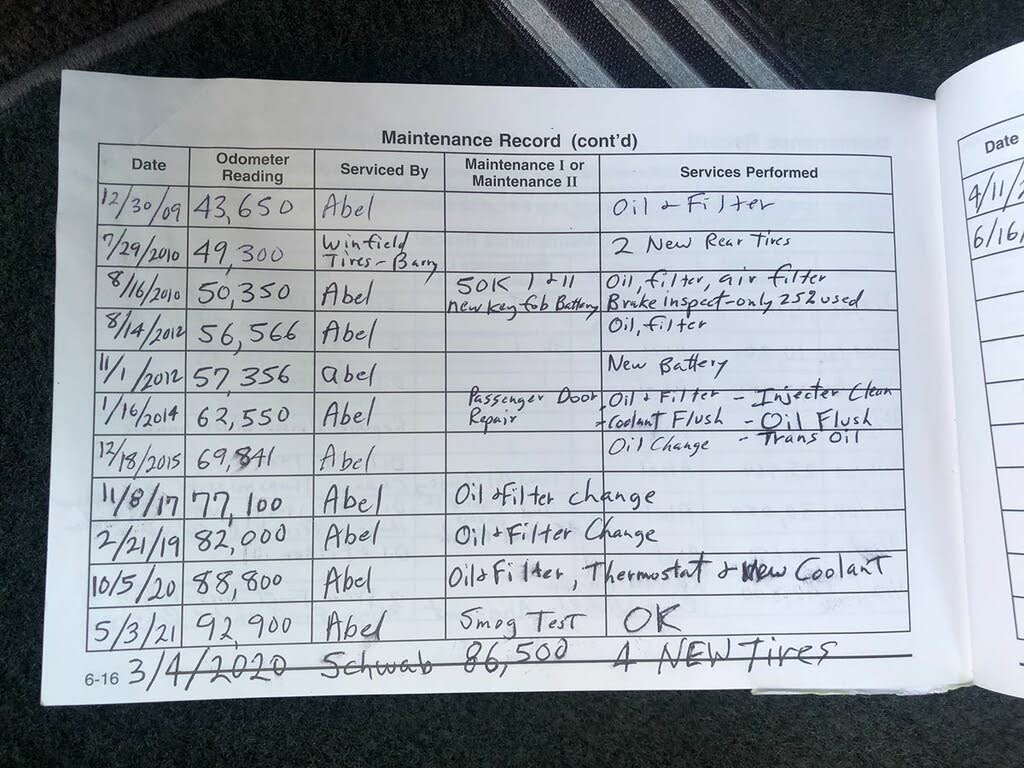 Maintenance Record (cont'd)
Date Odometer Reading Serviced By Maintenance I or Maintenance II Services Performed
12/30/09 43,650 Abel Oil & Filter
7/29/2010 49,300 Winfield Tires - Barry 2 New Rear Tires
8/16/2010 50,350 Abel 50K I & II Oil, filter, air filter
new key fob Battery Brake inspect - only 25% used
8/14/2012 56,566 Abel Oil, filter
11/1/2012 57,356 abel New Battery
1/16/2014 62,550 Abel Passenger Door Repair Oil & Filter - Injecter Clean
- Coolant Flush - Oil Flush
- Trans Oil
12/18/2015 69,841 Abel Oil Change
11/8/17 77,100 Abel Oil & Filter change
2/21/19 82,000 Abel Oil & Filter Change
10/5/20 88,800 Abel Oil & Filter, Thermostat & New Coolant
5/3/21 92,900 Abel Smog Test OK
3/4/2020 Schwab 86,500 4 NEW Tires
6-16
Date
4/11/2
6/16/